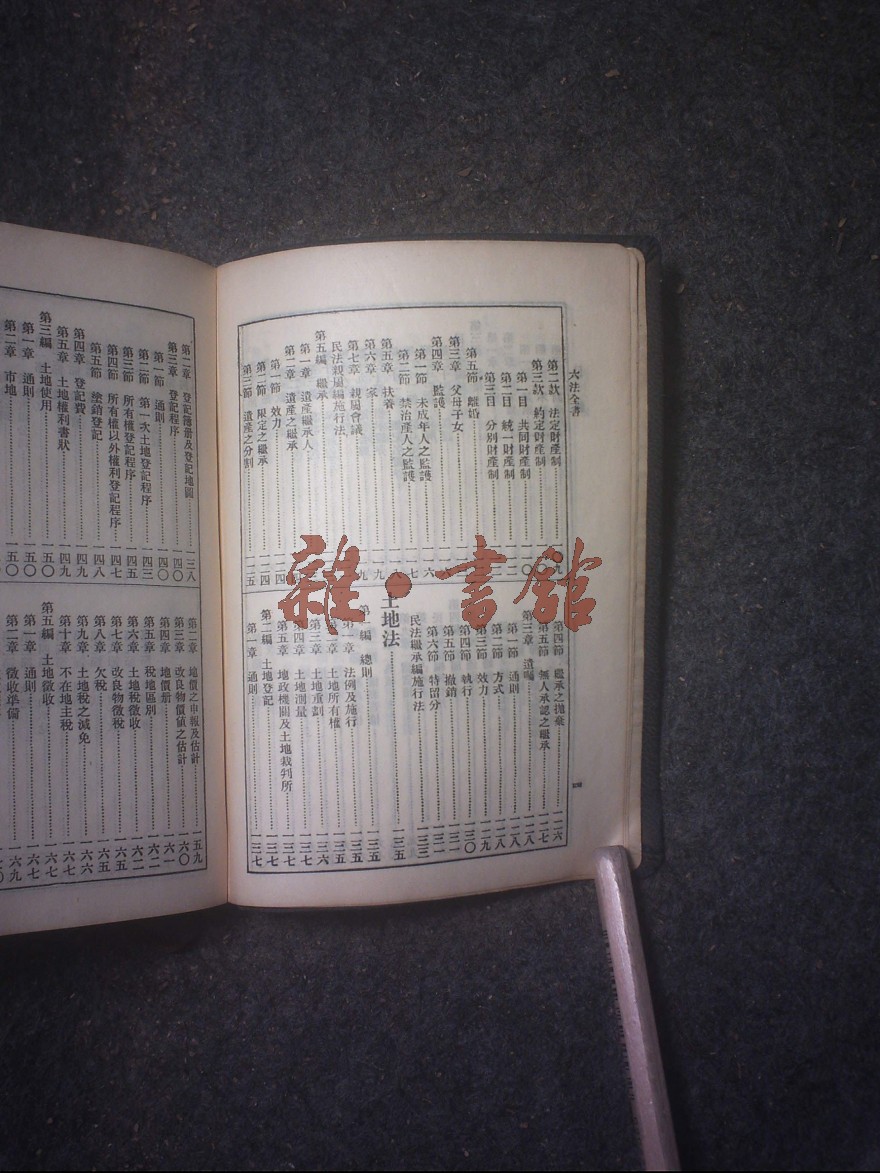 六法全書
第二款 法定財產制
第三款 約定財產制
第一目 共同財產制
第二目 統一財產制
第三目 分別財產制
第五節 離婚
第三章 父母子女
第四章 監護
第一節 未成年人之監護
第二節 禁治產人之監護
第五章 扶養
第六章 家
第七章 親屬會議
民法親屬編施行法
第五編 繼承
第一章 遺產繼承人
第二章 遺產之繼承
第一節 效力
第二節 限定之繼承 一二四
第三節 遺產之分割 一二五
第四節 繼承之拋棄 一二六
第五節 無人承認之繼承 一二七
第三章 遺囑 一二八
第一節 通則 一二八
第二節 方式 一二八
第三節 效力 一二九
第四節 執行 一三〇
第五節 撤銷 一三二
第六節 特留分 一三二
民法繼承編施行法 一三三
土地法 一三五
第一編 總則 一三五
第一章 法例及施行 一三五
第二章 土地所有權 一三五
第三章 土地重劃 一三六
第四章 土地測量 一三七
第五章 地政機關及土地裁判所 一三七
第二編 土地登記 一三七
第一章 通則 一三七
第二章 登記簿册及登記地圖 一三八
第三章 登記程序 一四〇
第一節 通則 一四〇
第二節 第一次土地登記程序 一四三
第三節 所有權登記程序 一四五
第四節 所有權以外權利登記程序 一四七
第五節 塗銷登記 一四八
第四章 登記費 一四九
第五章 土地權利書狀 一四九
第三編 土地使用 一五〇
第一章 通則 一五〇
第二章 市地 一五〇
第二章 地價之申報及估計 一五九
第三章 改良物價值之估計 一六〇
第四章 地價册 一六一
第五章 稅地區別 一六二
第六章 土地稅徵收 一六二
第七章 改良物徵稅 一六五
第八章 欠稅 一六五
第九章 土地稅之減免 一六六
第十章 不在地主稅 一六七
第五編 土地徵收 一六七
第一章 通則 一六七
第二章 徵收準備 一六九
雜·書館